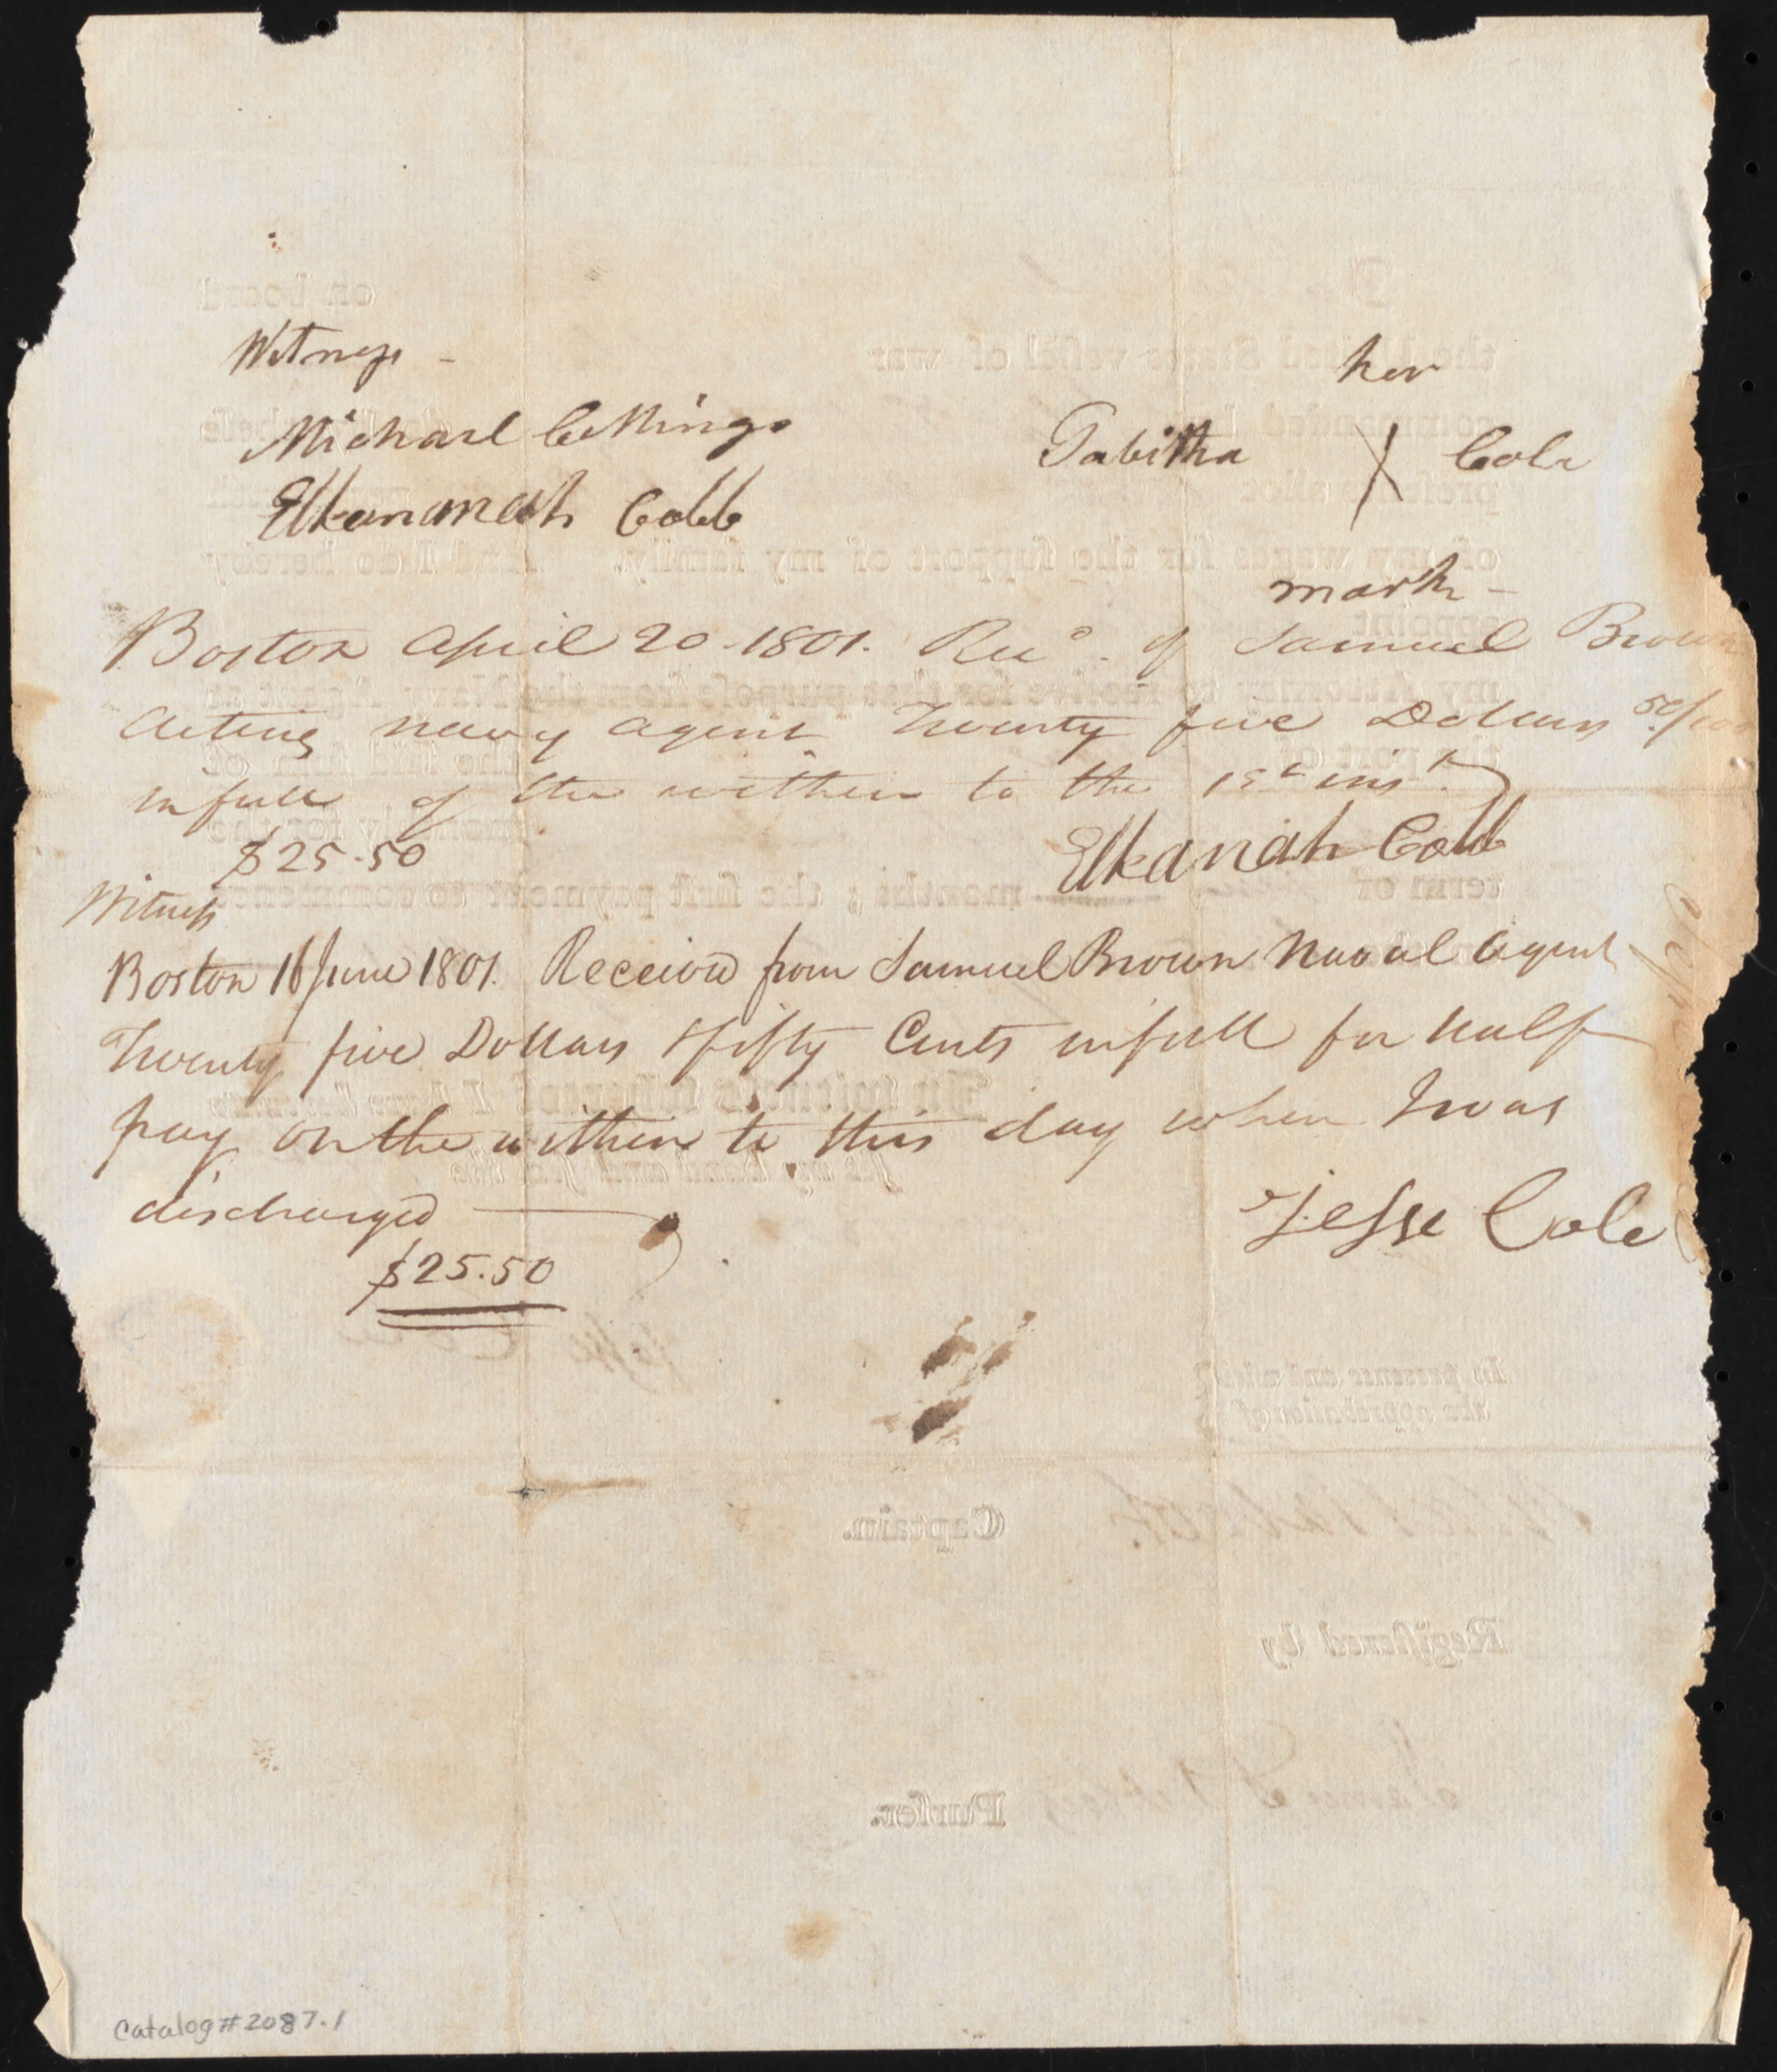 Witness -
her
Michael Collings
Tabitha X Cole
Elkannah Cobb
mark -
Boston April 20 - 1801. Recd. of Samuel Brown
Acting navy agent Twenty five Dollars 50/100
in full of the within to the 1st inst.
$25.50
Elkanah Cobb
Witness
Boston 16 June 1801. Received from Samuel Brown Naval Agent
Twenty five Dollars & fifty Cents in full for half
pay on the within to this day when I was
discharged
Jesse Cole
$25.50
Catalog # 2087.1